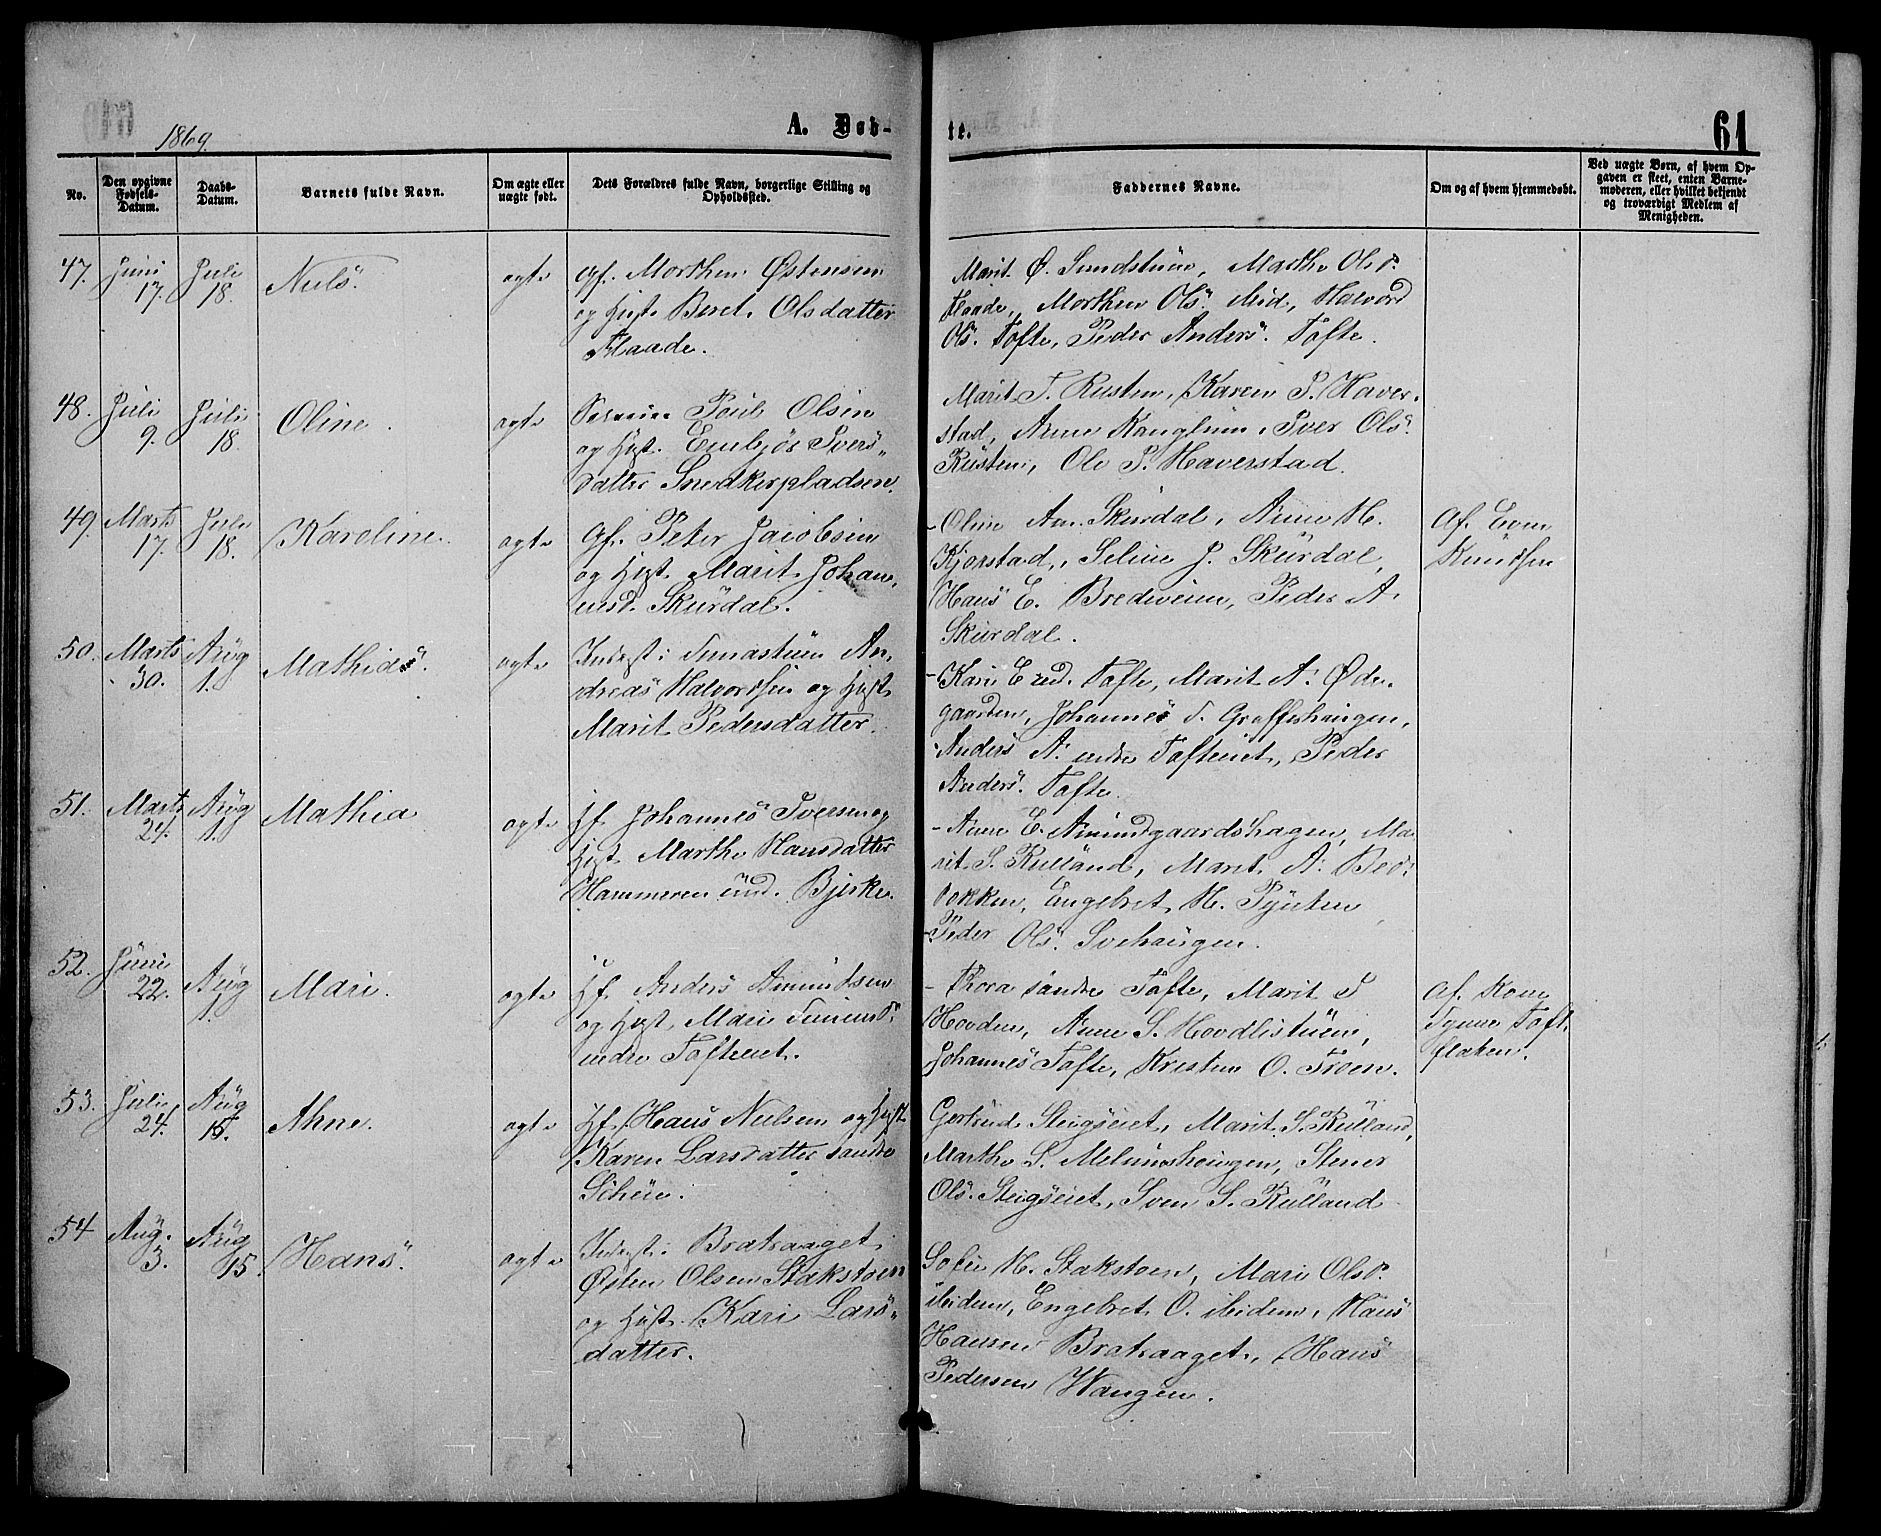 1869.
A. Døb-
te.
61
No.
Den opgivne Fødsels-Datum.
Daabs-Datum.
Barnets fulde Navn.
Om ægte eller uægte født.
Dets Forældres fulde Navn, borgerlige Stilling og Opholdssted.
Faddernes Navne.
Om og af hvem hjemmedøbt.
Ved uægte Børn, af hvem Opgaven er skeet, enten Barnemoderen, eller hvilket bekjendt og troværdigt Medlem af Menigheden.
47. Juni 17. Juli 18. Niels. ægte
Gf. Morthen Østensen
og Hust. Beret Olsdatter
Flaade.
Marit Ø. Sundstuen, Marthe Olsd.
Flaade, Morthen Ols. ibid, Halvord
Ols. Tofte, Peder Anders. Tofte.
48. Juli 9. Juli 18. Oline. ægte
Poul Olsen
og Hust. Embjør Ivers-
datter Snedkerpladsen.
Marit T. Rusten, Karen P. Haver-
stad, Anne Kanglien, Iver Ols.
Rusten, Ole P. Haverstad.
49. Marts 17. Juli 18. Karoline. ægte
Gf. Peter Jacobsen
og Hust. Marit Johan-
nesd. Skurdal.
Oline An. Skurdal, Anne H.
Kjorstad, Seline J. Skurdal,
Hans E. Bredeveien, Peder A.
Skurdal.
Af Even
Knudsen
50. Marts 30. Aug 1. Mathias. ægte
Inderst i An-
dreas Halvordsen og Hust.
Marit Pedersdatter.
Kari E. nd. Tofte, Marit A. Øde-
gaarden, Johannes T. Graffershaugen,
Anders A. nedre Tofteeiet, Peder
Anders. Tofte.
51. Marts 24. Aug 1. Mathea ægte
Hf. Johannes Iversen og
Hust. Marthe Hansdatter
Hammeren und. Bjerke.
Anne E. Amundgaardshagen, Ma-
rit S. Rulland, Marit A. Bed-
dokken, Engebret H. Pynten
Peder Ols. Svehaugen.
52. Juni 22. Aug 1. Mari. ægte
Hf. Anders Amundsen
og Hust. Mari
nedre Tofteeiet.
Thora søndre Tofte, Marit T
Hovden, Anne S. Hovdlistuen,
Johannes Tofte, Kristen O. Troen.
Af Kone
Synne Toft
flaten.
53. Juli 24. Aug 15. Ahne. ægte
Hf. Hans Nielsen og Hust.
Karen Larsdatter søndre
Scheie.
Gertrud Steigseiet, Marit S. Rulland,
Marthe S. Melumshaugen, Stener
Ols. Steigseiet, Sven S. Rulland
54 Aug. 3. Aug 15. Hans. ægte
Inderst i Brataaget
Østen Olsen Stakstoen
og Hust. Kari Lars-
datter.
Sofie H. Stakstoen, Mari Olsd.
ibidem, Engebret O. ibidem, Hans
Hansen Brataaget, Hans
Pedersen Wangen.